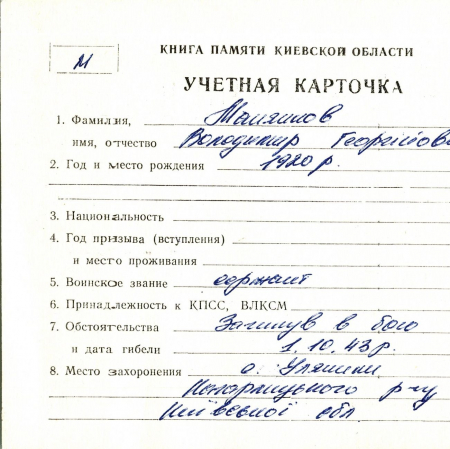 М
КНИГА ПАМЯТИ КИЕВСКОЙ ОБЛАСТИ
УЧЕТНАЯ КАРТОЧКА
1. Фамилия,
имя, отчество Володимир Георгійов
2. Год и место рождения 1920 р.
3. Национальность
4. Год призыва (вступления)
и место проживания
5. Воинское звание сержант
6. Принадлежность к КПСС, ВЛКСМ
7. Обстоятельства Загинув в бою
и дата гибели 1.10.43 р.
8. Место захоронения с. Уляники
Кагарлицького р-ну
Київської обл